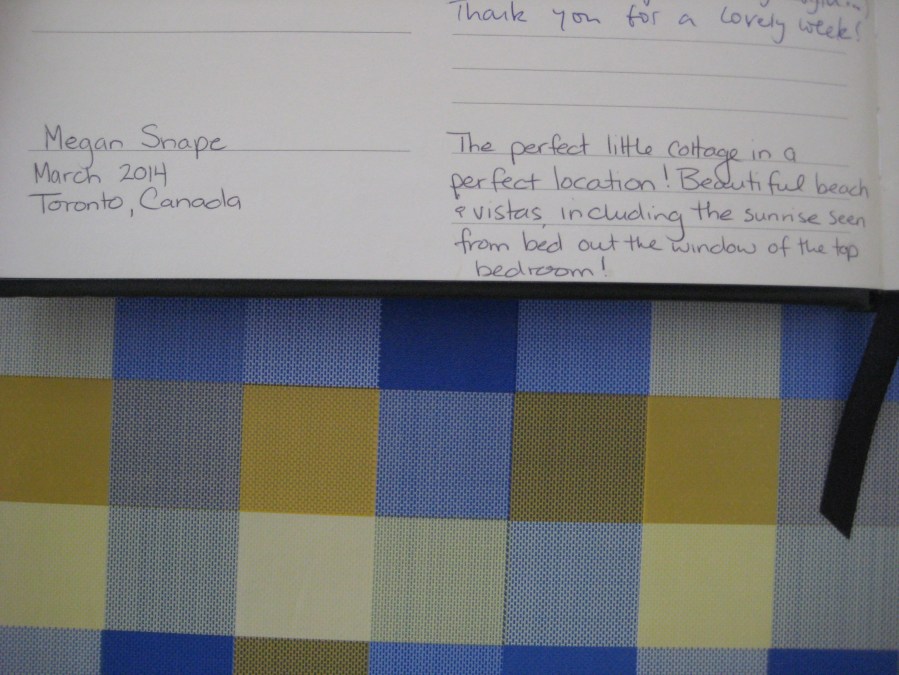 Thank you for a lovely week!
Megan Snape
March 2014
Toronto, Canada
The perfect little cottage in a
perfect location! Beautiful beach
& vistas, including the sunrise seen
from bed out the window of the top
bedroom!